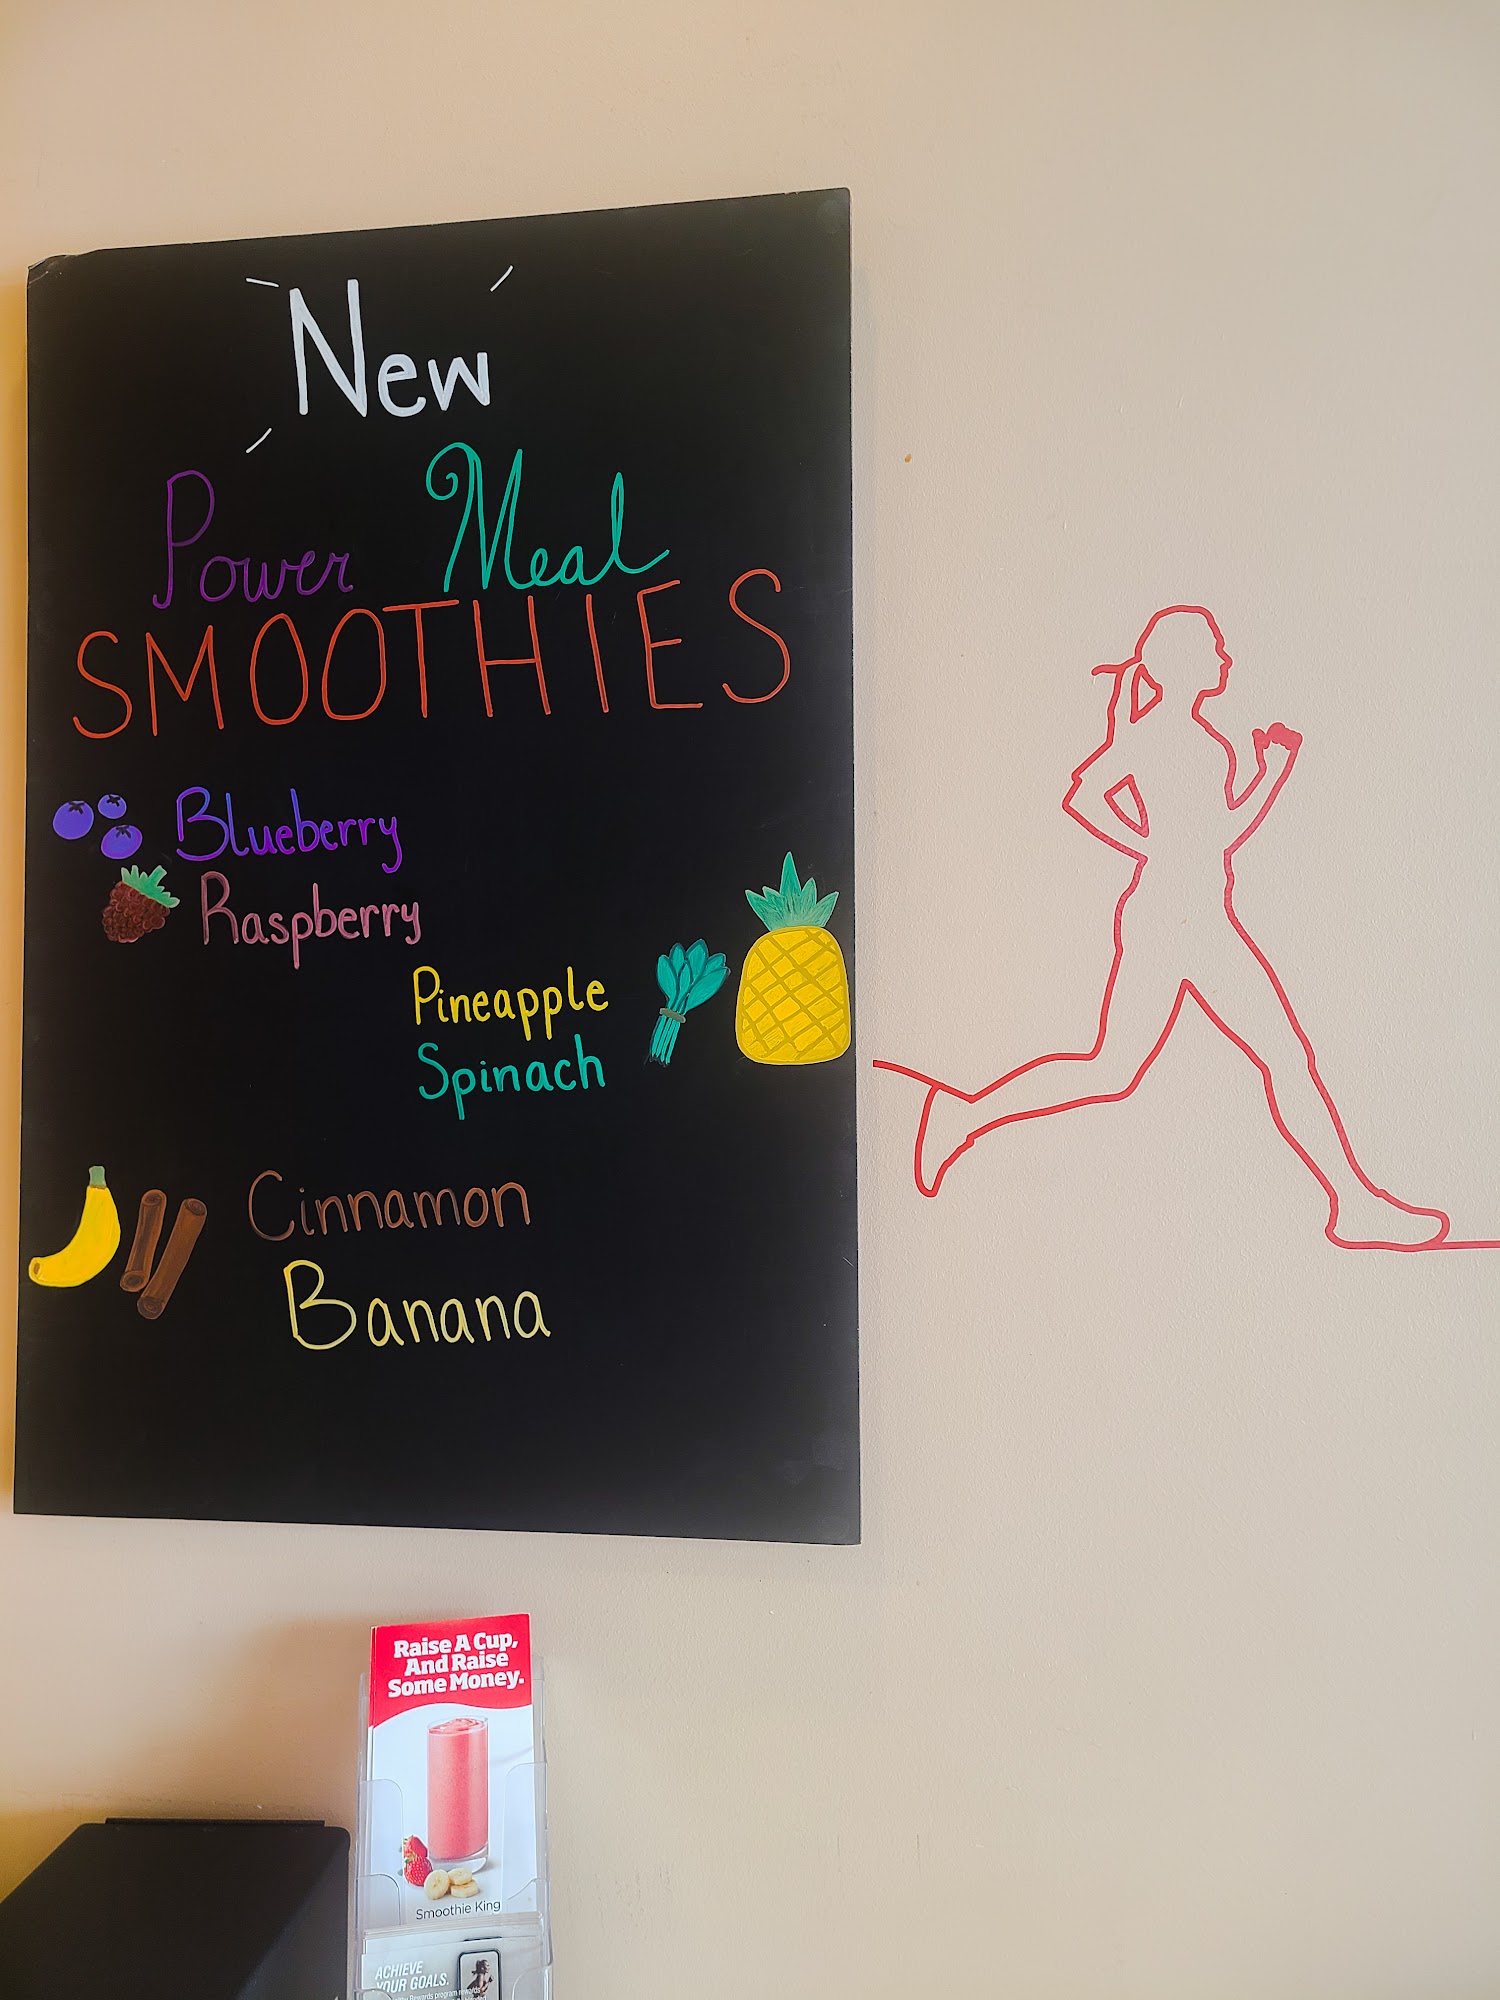 New
Power Meal
SMOOTHIES
Blueberry
Raspberry
Pineapple
Spinach
Cinnamon
Banana
Raise A Cup,
And Raise
Some Money.
Smoothie King
ACHIEVE
YOUR GOALS.
Rewards program rewards